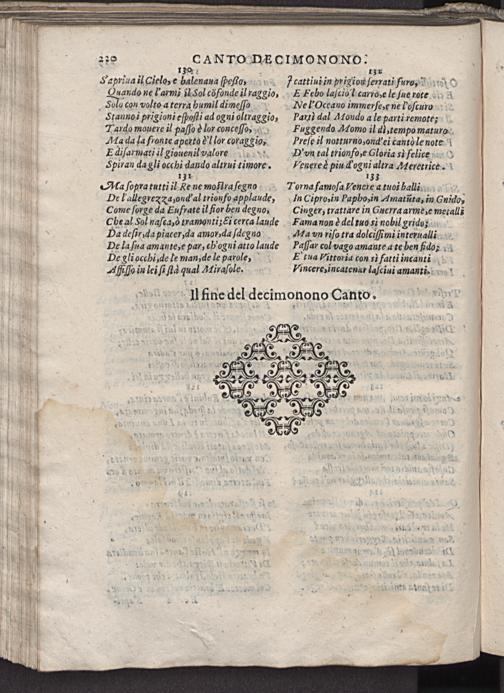 220 CANTO DECIMONONO.
130
S'apriua il Cielo, e balenaua spesso,
Quando ne l'armi il Sol cõfonde il raggio,
Solo con volto a terra humil dimesso
Stanno i prigioni esposti ad ogni oltraggio,
Tardo mouere il passo è lor concesso,
Ma da la fronte aperto è'l lor coraggio,
E disarmati il giouenil valore
Spiran da gli occhi dando altrui timore.
131
Ma sopra tutti il Re ne mostra segno
De l'allegrezza, ond'al trionfo applaude,
Come sorge da Eufrate il fior ben degno,
Che al Sol nasca, ò tramonti; Ei cerca laude
Da desir, da piacer, da amor, da sdegno
De la sua amante, e par, ch'ogni atto laude
De gli occhi, de le man, de le parole,
Affisso in lei si stà qual Mirasole.
132
I cattiui in prigion serrati furo,
E Febo lasciò'l carro, e le sue rote
Ne l'Oceano immerse, e ne l'oscuro
Partì dal Mondo a le parti remote;
Fuggendo Momo il dì, tempo maturo
Prese il notturno, ond'ei cantò le note
D'vn tal trionfo, e Gloria sì felice
Venere è piu d'ogni altra Meretrice.
133
Torna famosa Venere a tuoi balli
In Cipro, in Papho, in Amatũta, in Gnido,
Cinger, trattare in Guerra arme, e metalli
Fama non è del tuo sì nobil grido;
Ma vn riso tra dolcissimi interualli
Passar col vago amante a te ben fido;
E' tua Vittoria con sì fatti incanti
Vincere, incatenar lasciui amanti.
Il fine del decimonono Canto.